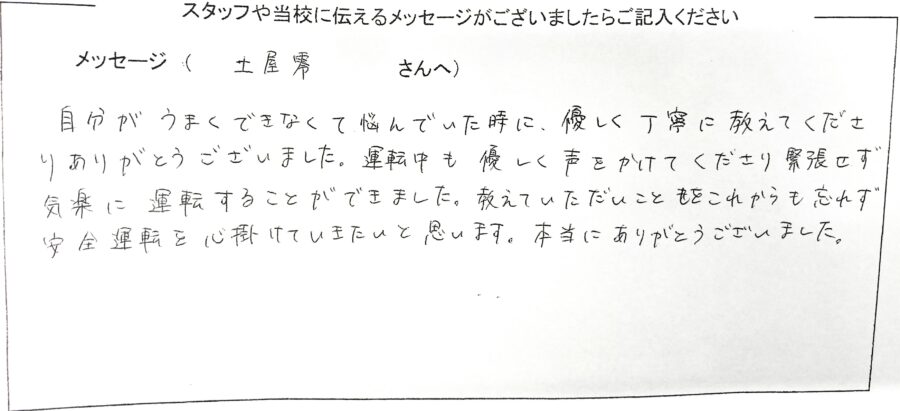 スタッフや当校に伝えるメッセージがございましたらご記入ください
メッセージ ( 土屋零 さんへ)
自分がうまくできなくて悩んでいた時に、優しく丁寧に教えてくださ
りありがとうございました。運転中も優しく声をかけてくださり緊張せず
気楽に運転することができました。教えていただいことをこれからも忘れず
安全運転を心掛けていきたいと思います。本当にありがとうございました。